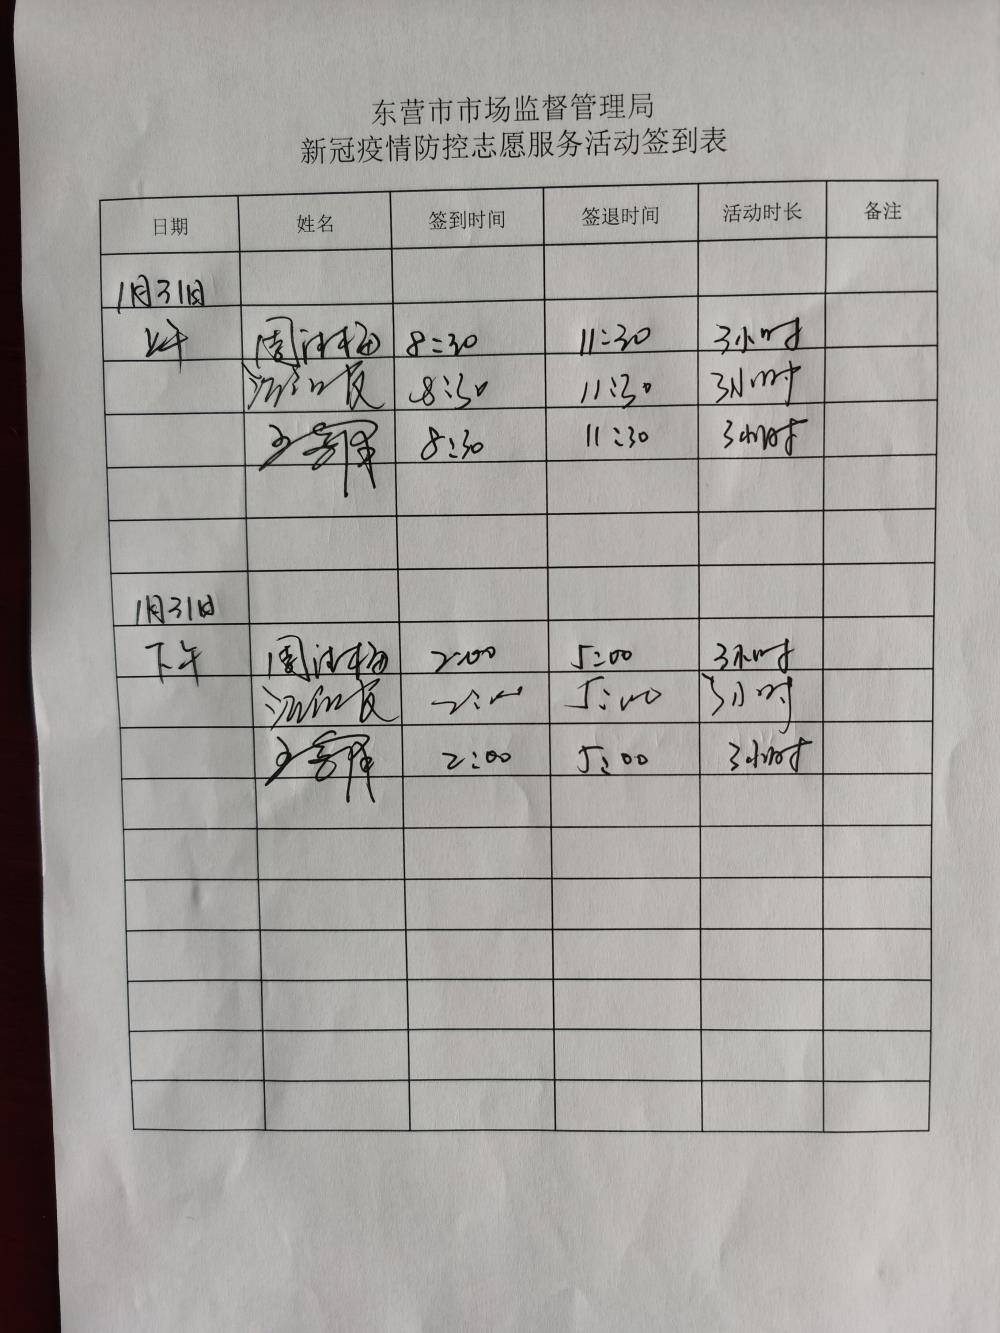 东营市市场监督管理局
新冠疫情防控志愿服务活动签到表
日期 姓名 签到时间 签退时间 活动时长 备注
1月31日
上午 周 8:30 11:30 3小时
8:30 11:30 3小时
8:30 11:30 3小时
1月31日
下午 周 2:00 5:00 3小时
2:00 5:00 3小时
2:00 5:00 3小时